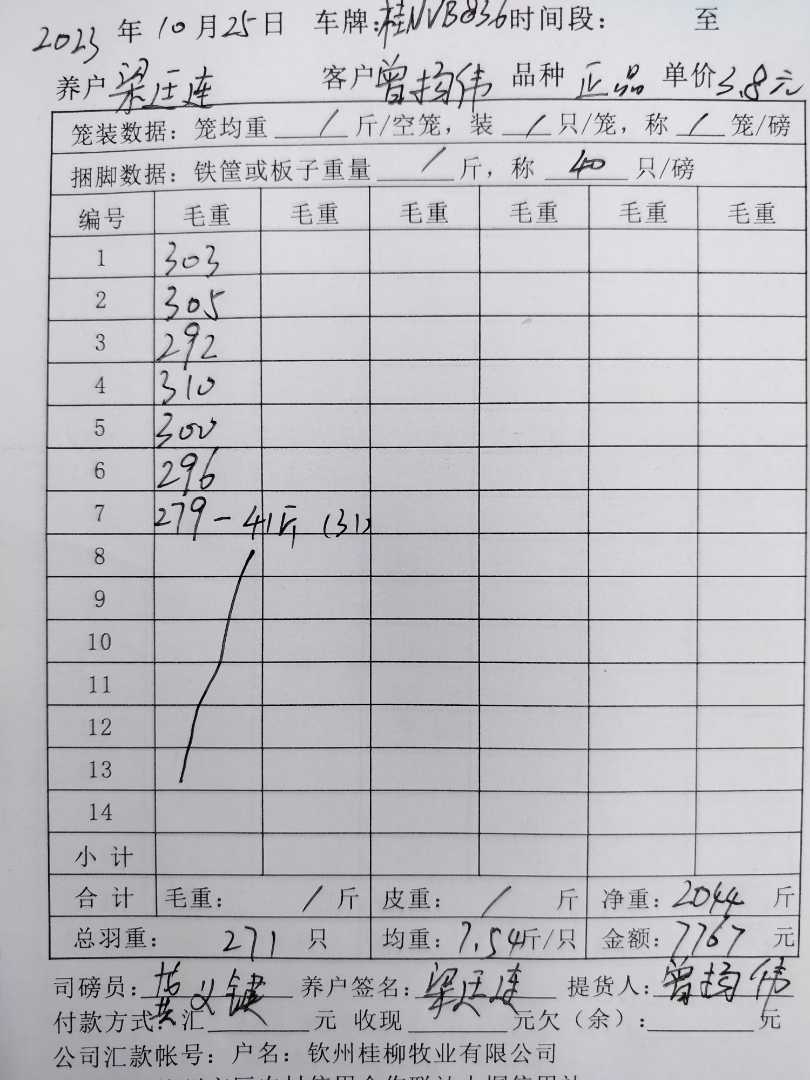 2023 年 10 月 25 日 车牌: 桂NVB836 时间段: 至
养户 梁廷连 客户 曾扬伟 品种 正品 单价 3.8元
笼装数据: 笼均重 / 斤/空笼, 装 / 只/笼, 称 / 笼/磅
捆脚数据: 铁筐或板子重量 / 斤, 称 40 只/磅
编号 毛重 毛重 毛重 毛重 毛重 毛重
1 303
2 305
3 292
4 310
5 300
6 296
7 279 - 41斤 (31)
8
9
10
11
12
13
14
小 计
合 计 毛重: / 斤 皮重: / 斤 净重: 2044 斤
总羽重: 271 只 均重: 7.54 斤/只 金额: 7767 元
司磅员: 黄义键 养户签名: 梁廷连 提货人: 曾扬伟
付款方式: 汇 元 收现 元欠(余): 元
公司汇款帐号: 户名: 钦州桂柳牧业有限公司